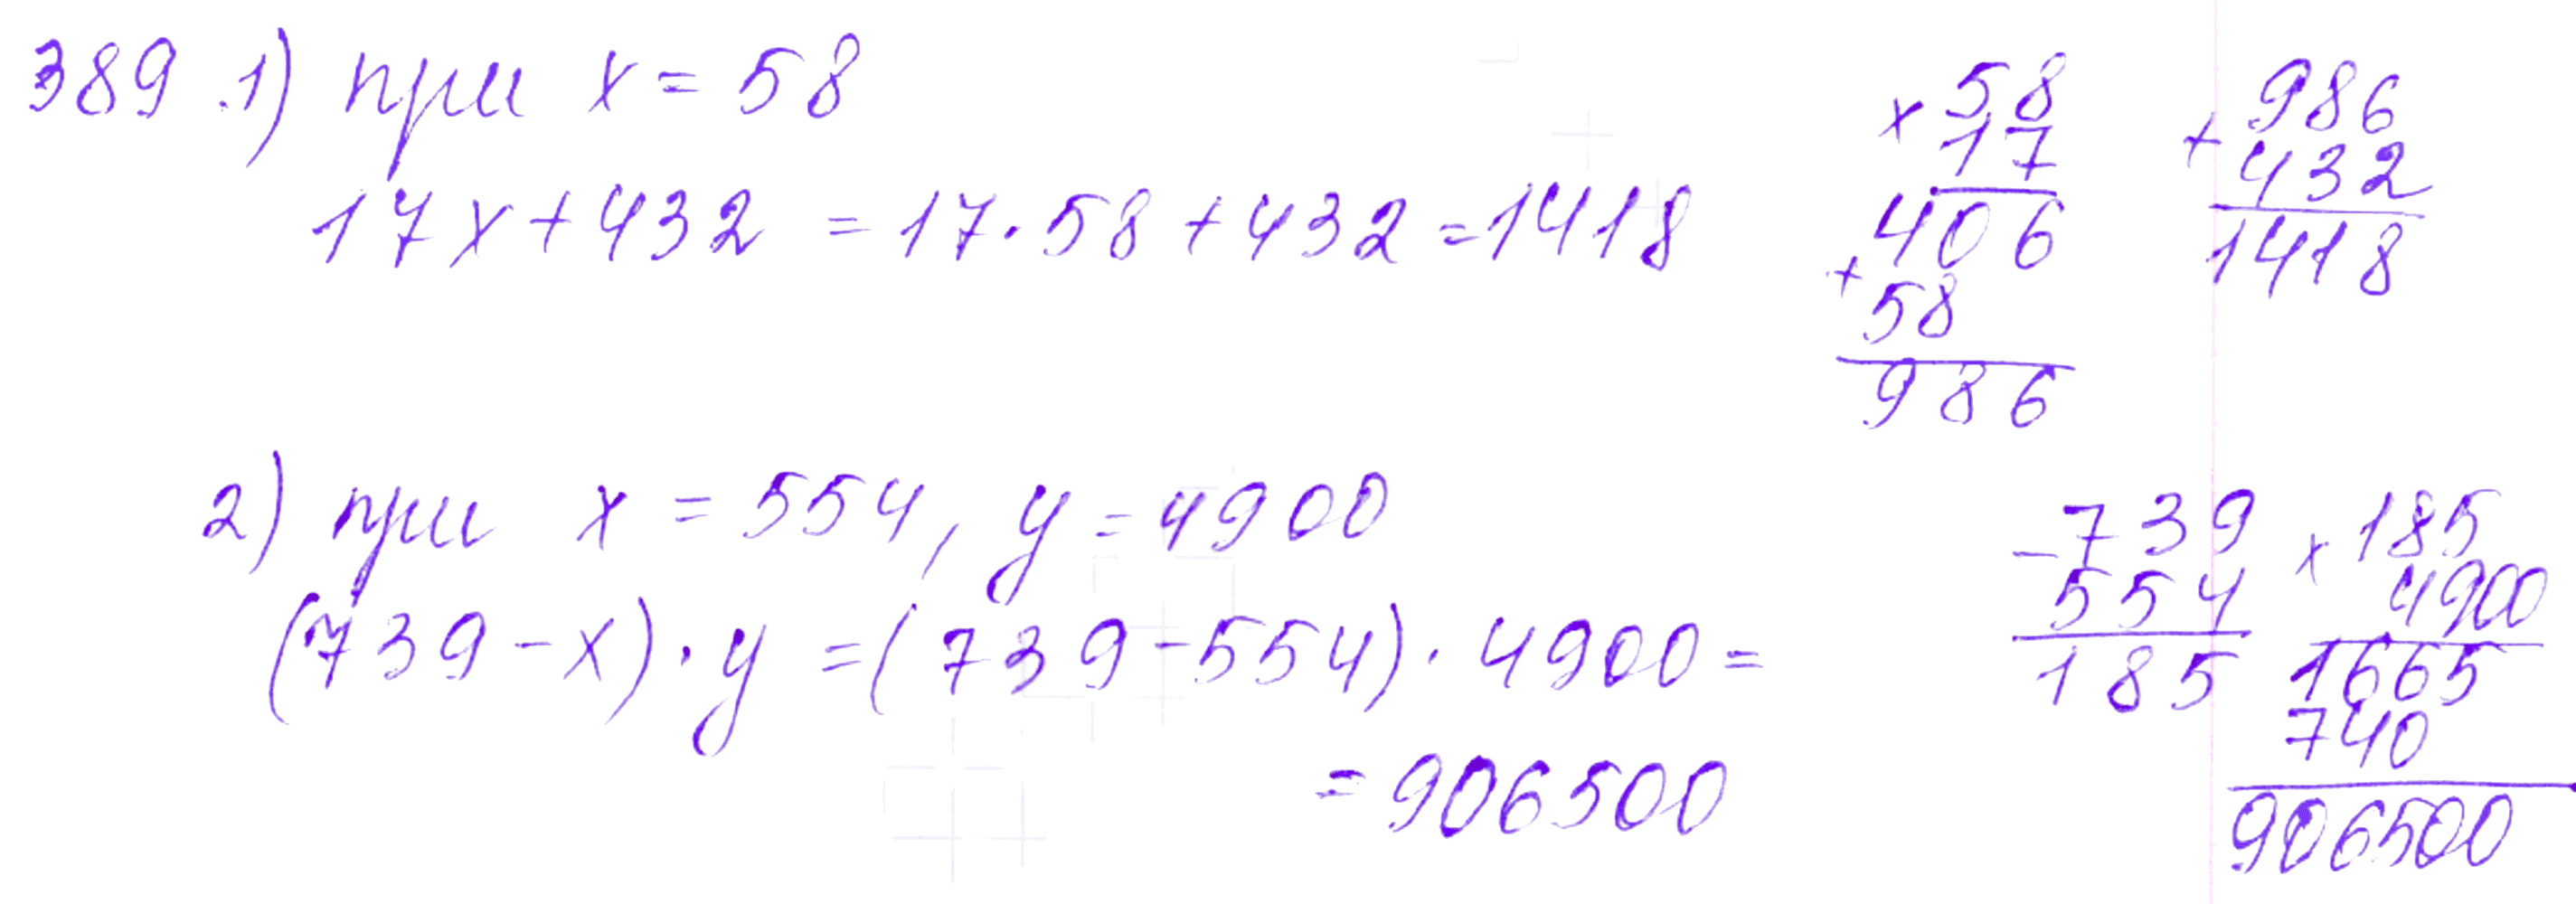 389 .1) при x = 58
17x + 432 = 17 · 58 + 432 = 1418
× 58
17
406
+
58
986
+ 986
432
1418
2) при x = 554, y = 4900
(739 - x) · y = (739 - 554) · 4900 =
= 906500
- 739
554
185
× 185
4900
1665
740
906500